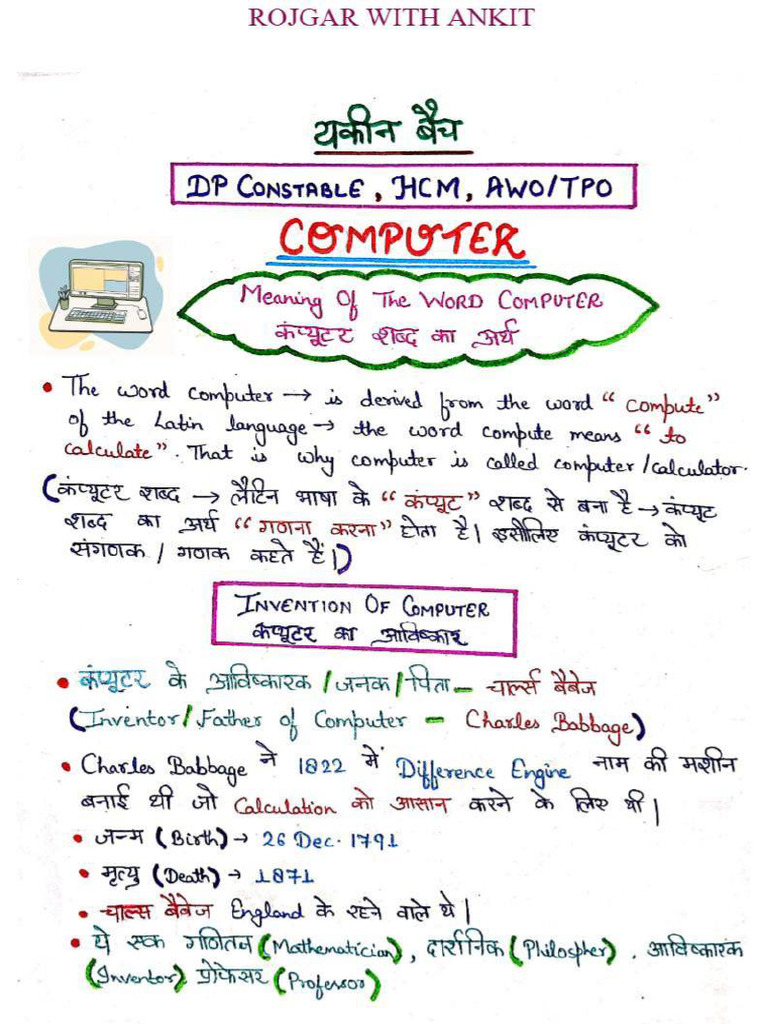 ROJGAR WITH ANKIT
यकीन बैच
DP CONSTABLE, HCM, AWO/TPO
COMPUTER
Meaning Of The WORD COMPUTER
कंप्यूटर शब्द का अर्थ
• The word computer → is derived from the word "compute"
of the Latin language → the word compute means "to
calculate". That is why computer is called computer/calculator.
(कंप्यूटर शब्द → लैटिन भाषा के "कंप्यूट" शब्द से बना है → कंप्यूट
शब्द का अर्थ "गणना करना" होता है। इसीलिए कंप्यूटर को
संगणक / गणक कहते हैं।)
INVENTION OF COMPUTER
कंप्यूटर का आविष्कार
• कंप्यूटर के आविष्कारक/जनक/पिता – चार्ल्स बैबेज
(Inventor/Father of Computer – Charles Babbage)
• Charles Babbage ने 1822 में Difference Engine नाम की मशीन
बनाई थी जो Calculation को आसान करने के लिए थी।
• जन्म (Birth) → 26 Dec. 1791
• मृत्यु (Death) → 1871
• चार्ल्स बैबेज England के रहने वाले थे।
• ये एक गणितज्ञ (Mathematician), दार्शनिक (Philospher), आविष्कारक
(Inventor) प्रोफेसर (Professor)